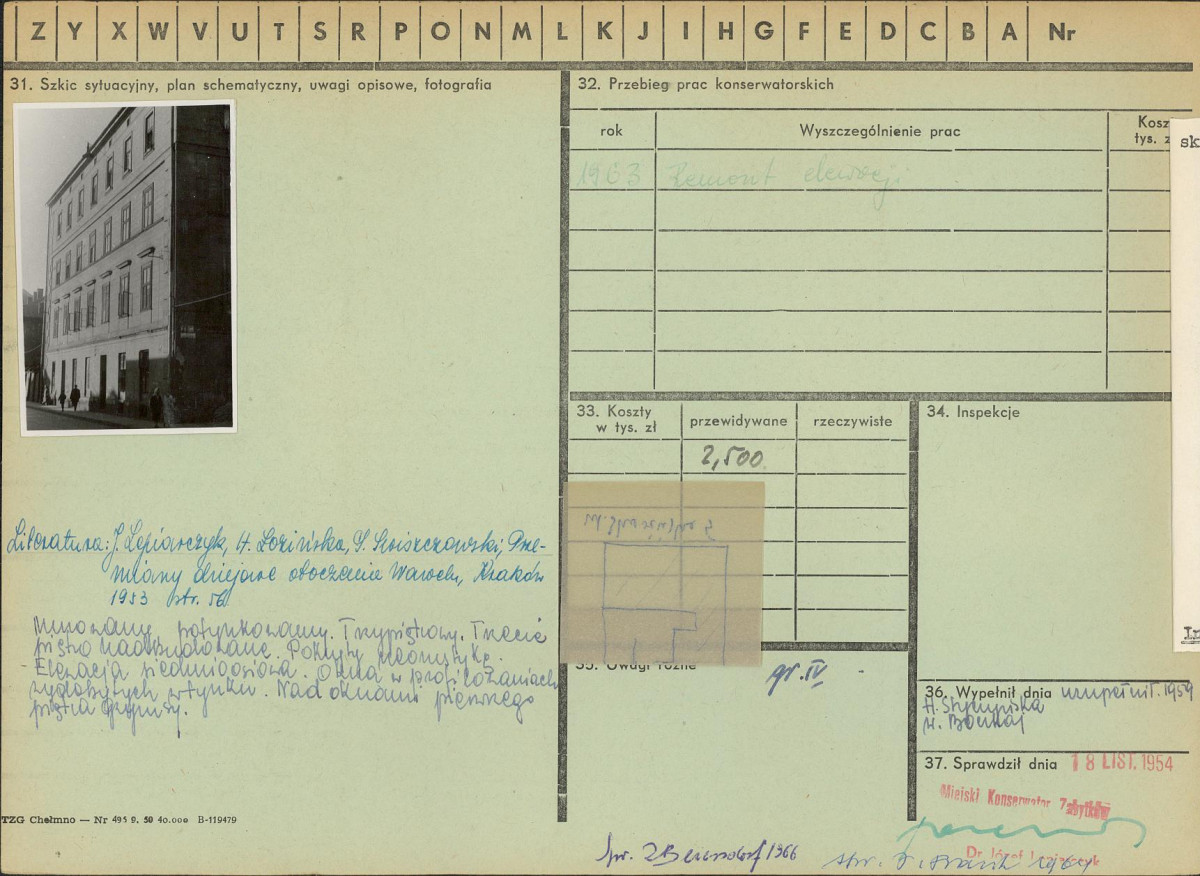 Z Y X W V U T S R P O N M L K J I H G F E D C B A Nr
31. Szkic sytuacyjny, plan schematyczny, uwagi opisowe, fotografia
Literatura: J. Lepiarczyk, H. Łozińska, S. Świszczowski, Prze-
miany dziejowe otoczenia Wawelu, Kraków
1953 str. 56
Murowany, potynkowany. Trzypiętrowy. Trzecie
piętro nadbudowane. Pokryty
Elewacja siedmioosiowa. Okna w profilowaniach
w tynku. Nad oknami pierwszego
piętra gzymsy.
TZG Chełmno — Nr 495 9. 50 40.000 B-119479
32. Przebieg prac konserwatorskich
rok Wyszczególnienie prac Kosz
tys. z
1963 Remont elewacji
33. Koszty
w tys. zł
przewidywane rzeczywiste
2,500
34. Inspekcje
35. Uwagi różne
gr. IV
36. Wypełnił dnia uzupełnił. 1959
37. Sprawdził dnia 18 LIST. 1954
Miejski Konserwator Zabytków
Dr Józef Lepiarczyk
Spr. Z Beiersdorf 1966
1964
sk